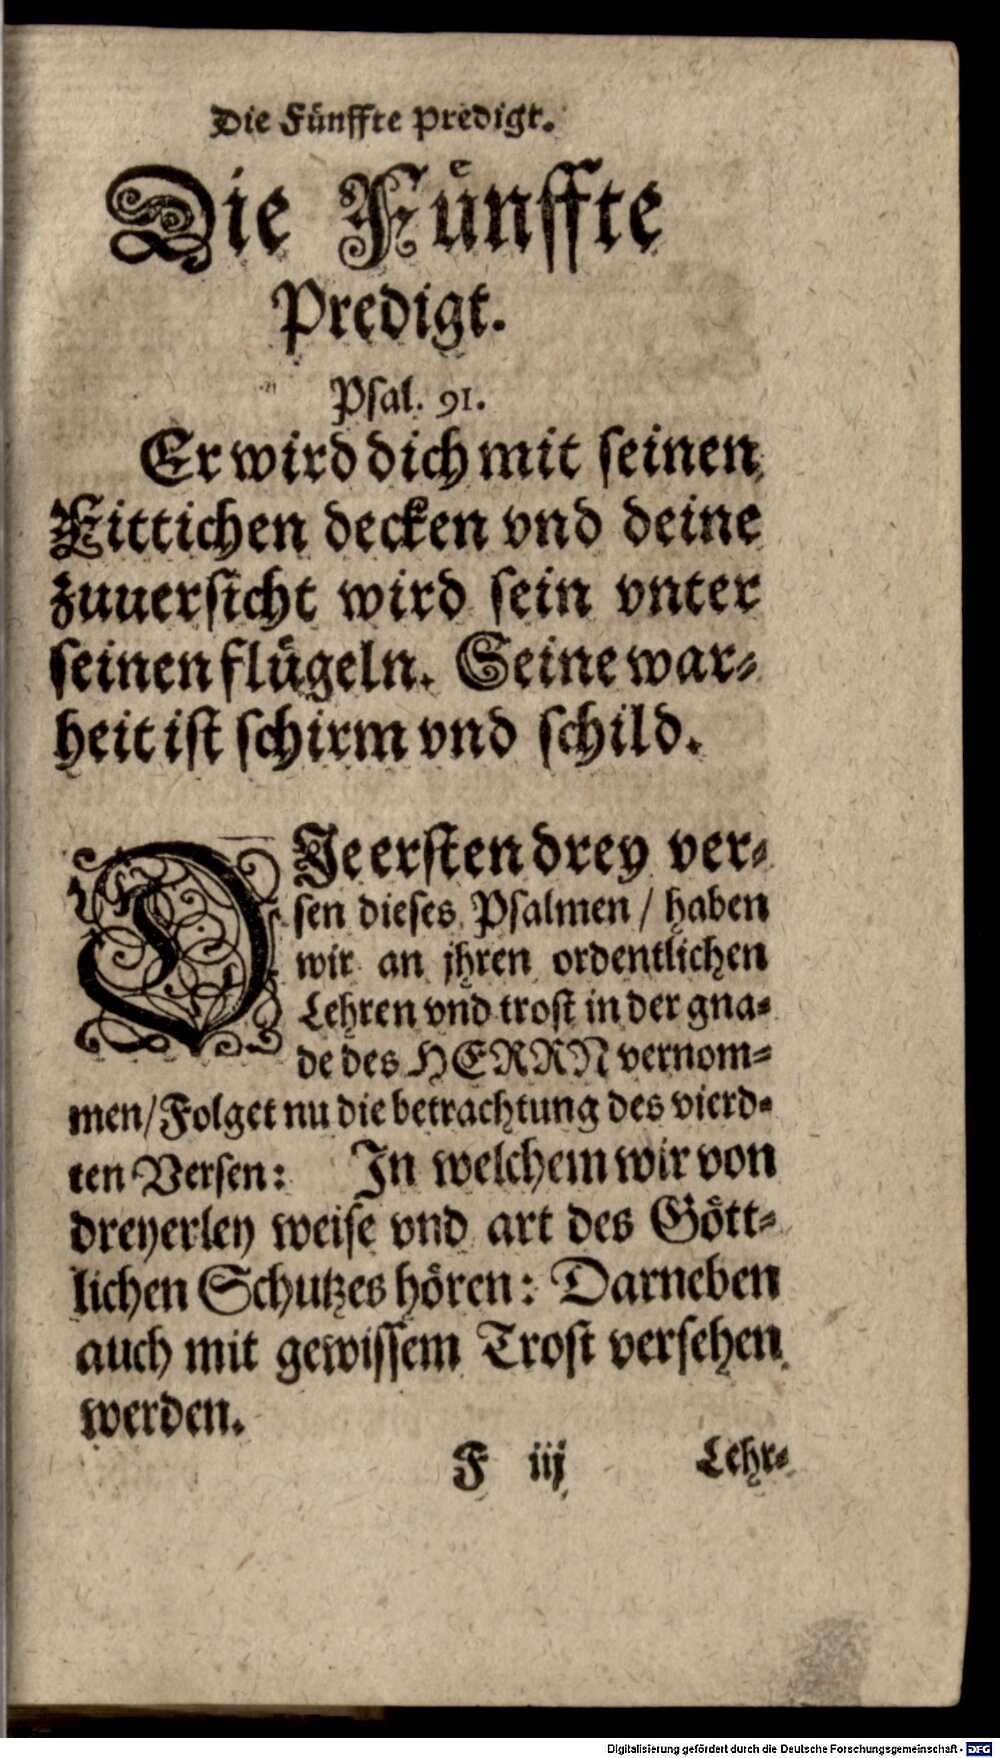 Die Fünffte Predigt.
Die Fünffte
Predigt.
Psal. 91.
Er wird dich mit seinen
Fittichen decken vnd deine
zuuersicht wird sein vnter
seinen flügeln. Seine war-
heit ist schirm vnd schild.
DJe ersten drey ver-
sen dieses Psalmen / haben
wir an jhren ordentlichen
Lehren vnd trost in der gna-
de des HERRN vernom-
men/ Folget nu die betrachtung des vierd-
ten Versen: In welchem wir von
dreyerley weise vnd art des Gött-
lichen Schutzes hören: Darneben
auch mit gewissem Trost versehen
werden.
F iij Lehr-
Digitalisierung gefördert durch die Deutsche Forschungsgemeinschaft - DFG